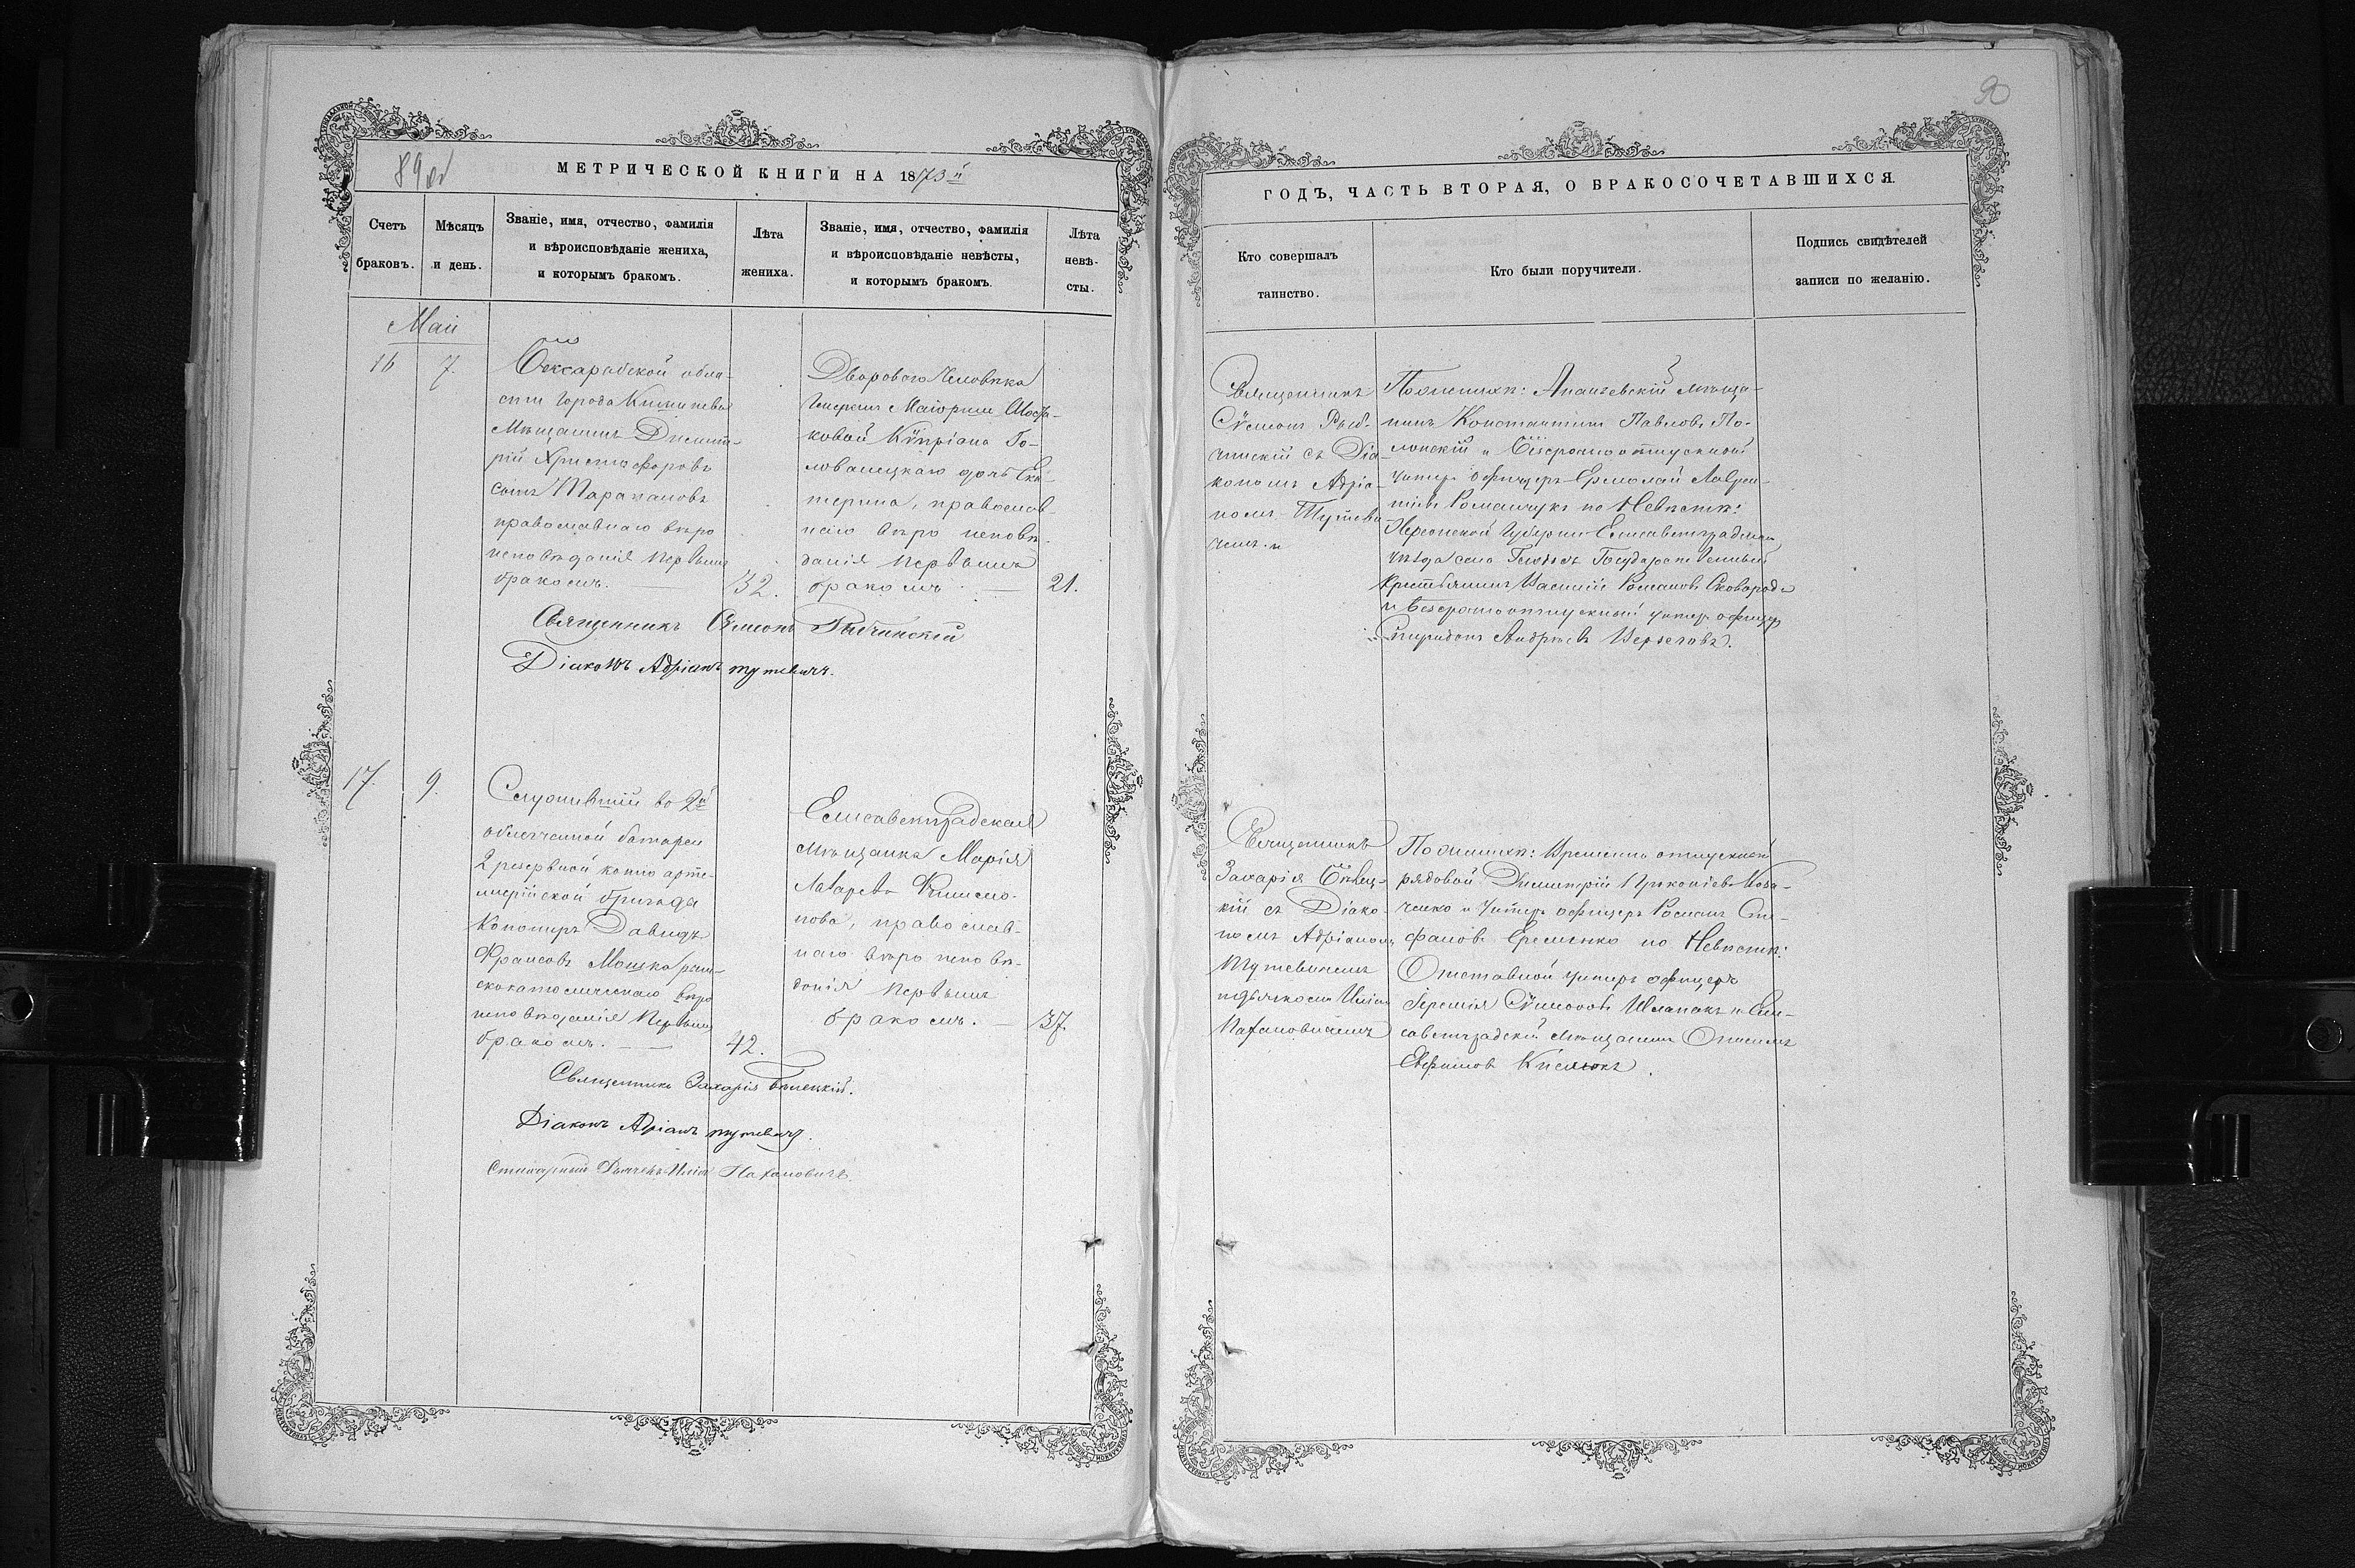 89об
МЕТРИЧЕСКОЙ КНИГИ НА 1873й
Счетъ
браковъ.
Мѣсяцъ
и день.
Званіе, имя, отчество, фамилія
и вѣроисповѣданіе жениха,
и которымъ бракомъ.
Лѣта
жениха.
Званіе, имя, отчество, фамилія
и вѣроисповѣданіе невѣсты,
и которымъ бракомъ.
Лѣта
невѣ-
сты.
Май
16
7.
Бессарабской обла-
сти города Кишинева
Мѣщанинъ Димит-
рій Христофоровъ
сынъ Таракановъ
православнаго вѣро
исповѣданія первымъ
бракомъ.
32.
Двороваго человѣка
Маіорши
ковой Кѵпріана Го-
ловащукаго дочь Ека-
терина, православ-
наго вѣро исповѣ-
данія первымъ
бракомъ
21.
Священникъ Сѵмеонъ Рыбчинскій
Діаконъ Адріанъ Тутевичъ.
17.
9.
Служившій во 2й
облегченной батареи
2 резервной конно арти-
лерійской бригады
Конониръ Давидъ
Францовъ Мошка рим-
скокатоличискаго вѣро
исповѣданія первымъ
бракомъ.
42.
Елисаветградская
мѣщанка Марія
Лазарева
нова, православ-
наго вѣро исповѣ-
данія первымъ
бракомъ.
37.
Священникъ Захарія Бѣлецкій.
Діаконъ Адріанъ Тутевичъ.
Стихарный Дьячекъ Илія Пахановичъ
90
ГОДЪ, ЧАСТЬ ВТОРАЯ, О БРАКОСОЧЕТАВШИХСЯ.
Кто совершалъ
таинство.
Кто были поручители.
Подпись свидѣтелей
записи по желанію.
Священникъ
Сѵмеонъ Рыб-
чинскій съ Діа-
кономъ Адріа-
номъ Тутеви-
чемъ.
По женихѣ: Ананьевскій мѣща-
нинъ Константинъ Павловъ По-
лонскій и Безсрочноотпускной
Унтеръ офицеръ Ермолай Лаврен-
тіевъ Романчукъ по Невѣстѣ:
Херсонской Губерніи Елисаветградскаго
уѣзда села Государственный
крестьянинъ Василій Романовъ Сковорода
и безсрочноотпускный унтеръ офицеръ
Спиридонъ Андреевъ
Священникъ
Захарія Бѣлец-
кій съ Діако-
номъ Адріаномъ
Тутевичемъ
и дьячкомъ Иліею
Пахановичемъ
По женихѣ: Временно отпускной
рядовой Димитрій Прокопіевъ Коза-
ченко и Унтеръ офицеръ Романъ Сте-
фановъ Еременко по Невѣстѣ:
Отставной унтеръ офицеръ
Іеремія Сѵмеоновъ Шлапакъ и Ели-
саветградскій мѣщанинъ Онисимъ
Евфимовъ Киселюкъ.